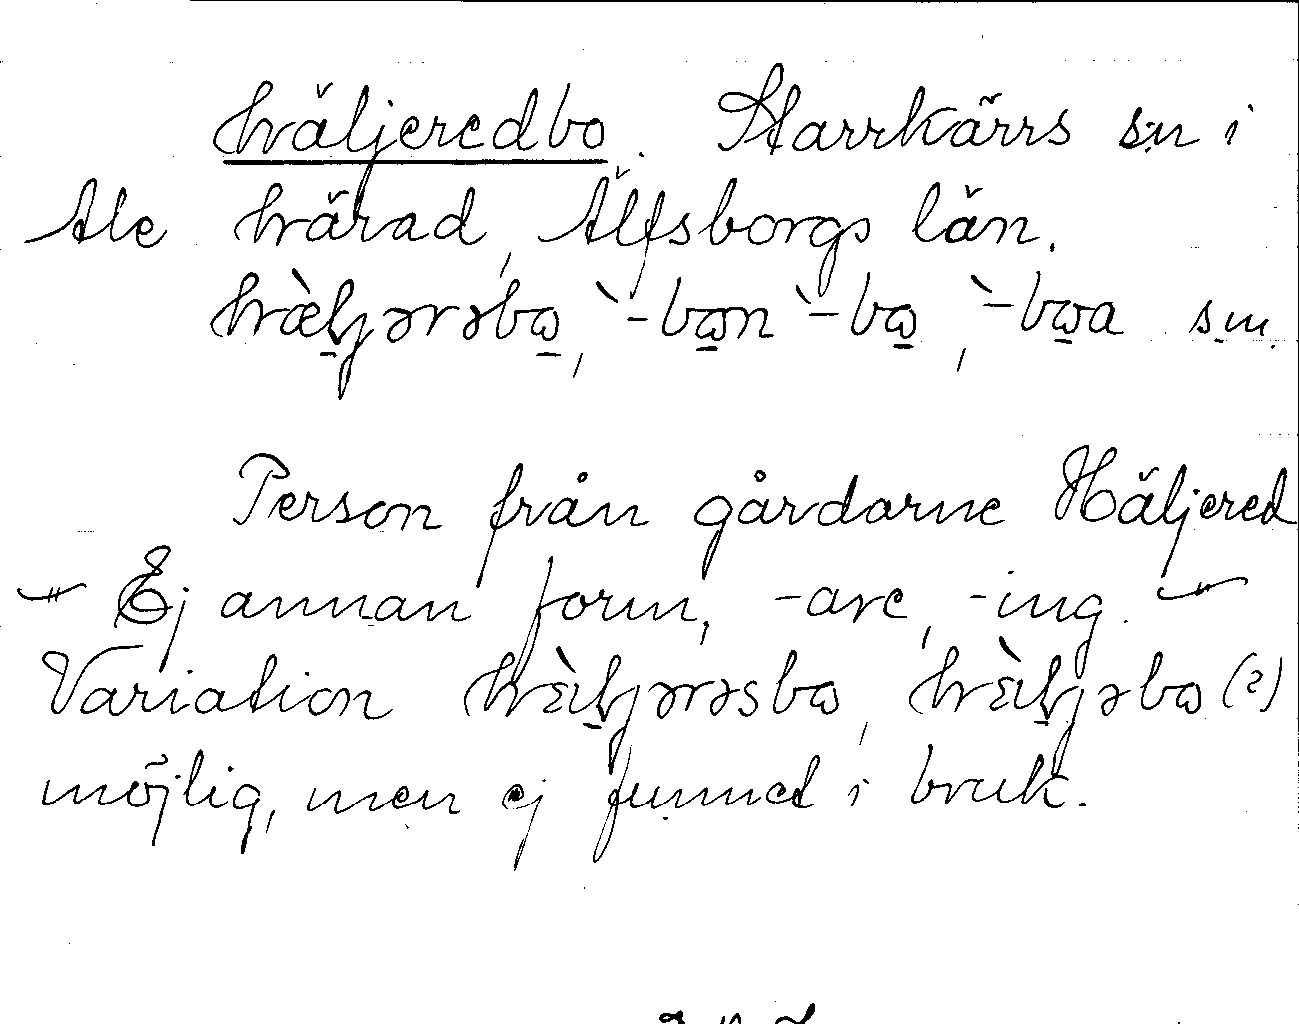 häljeredbo. Starrkärrs sn i
Ale härad, Älfsborgs län.
hæ̀l̬jərəbɷ, `-bɷn `-bɷ, `-bɷa sm.
Person från gårdarne Häljered
— Ej annan form, -are, -ing. —
Variation hɛ̀ljərəsbɷ, hɛ̀ljəbɷ (?)
möjlig, men ej funned i bruk.